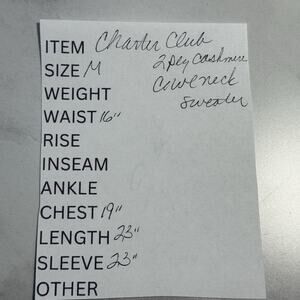 ITEM Charter Club
SIZE M 2 ply Cashmere
WEIGHT Cowl neck
WAIST 16" sweater
RISE
INSEAM
ANKLE
CHEST 19"
LENGTH 23"
SLEEVE 23"
OTHER